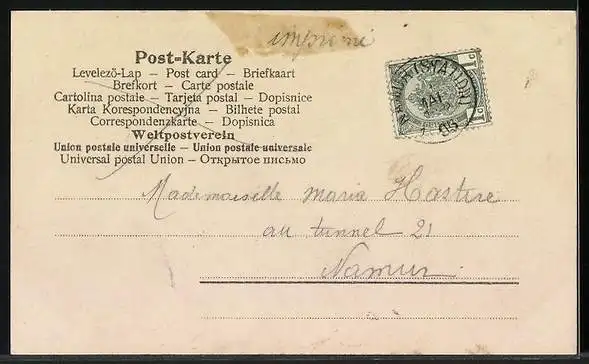 imprimé
Post-Karte
Levelező-Lap – Post card – Briefkaart
Brefkort – Carte postale
Cartolina postale – Tarjeta postal – Dopisnice
Karta Korespondencyjna – Bilhete postal
Correspondenzkarte – Dopisnica
Weltpostverein
Union postale universelle – Union postale universale
Universal postal Union – Открытое письмо
1c
1c
Mademoiselle Maria Hastire
au tunnel 21
Namur